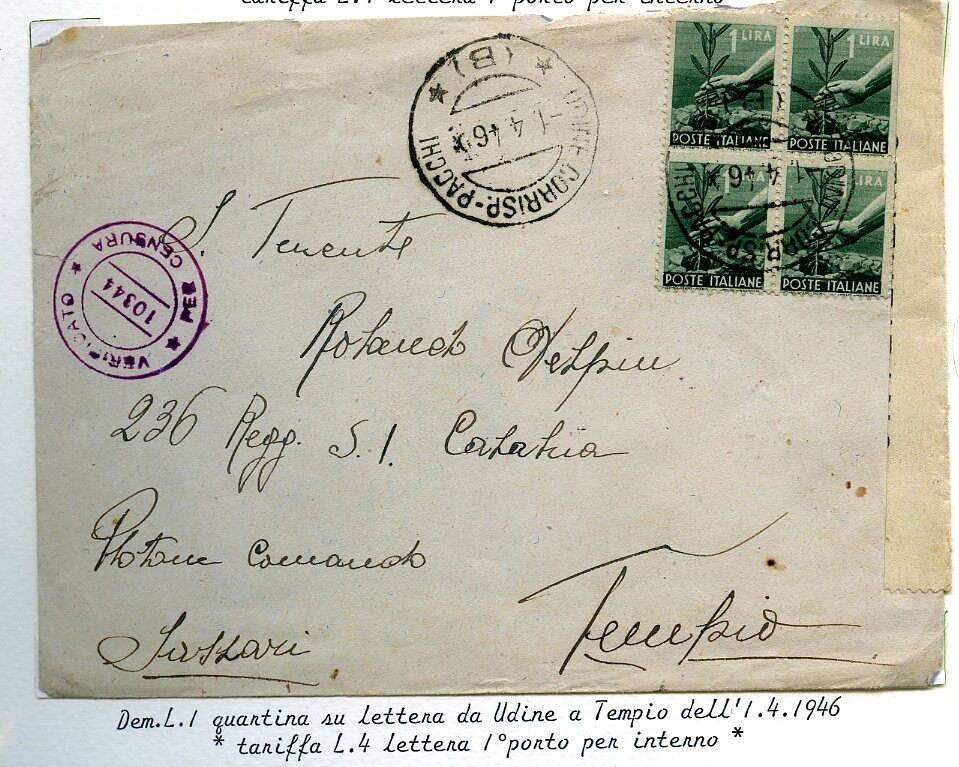 tariffa L.4 lettera 1°porto per interno
1 LIRA
1 LIRA
POSTE ITALIANE
POSTE ITALIANE
1 LIRA
1 LIRA
POSTE ITALIANE
POSTE ITALIANE
UDINE CORRISP.-PACCHI
* (B) *
-1.4.46
UDINE CORRISP-PACCHI
1 4 46
VERIFICATO * PER CENSURA *
10344
S. Tenente
Rolando
236 Regg. S. I.
Plotone Comando
Tempio
Sassari
Dem.L.1 quartina su lettera da Udine a Tempio dell'1.4.1946
* tariffa L.4 lettera 1°porto per interno *